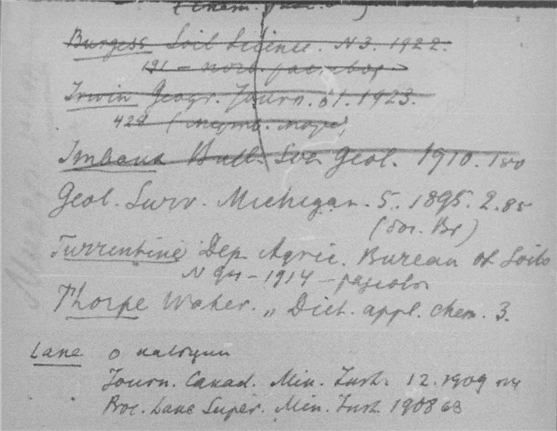 Burgess Soil Science. N 3. 1922.
191 –
Irwin Geogr. Journ. 61. 1923.
428 (мертв. море)
Bull. Soc. Geol. 1910. 150
Geol. Surv. Michigan. 5. 1895. 2.85
Turrentine Dep. Agric. Bureau of Soils
N 94 – 1914 –
Thorpe Water. „ Dict. appl. chem. 3.
Lane о
Journ. Canad. Min. Inst. 12. 1909
Proc. Lake Super. Min. Inst. 1908 63